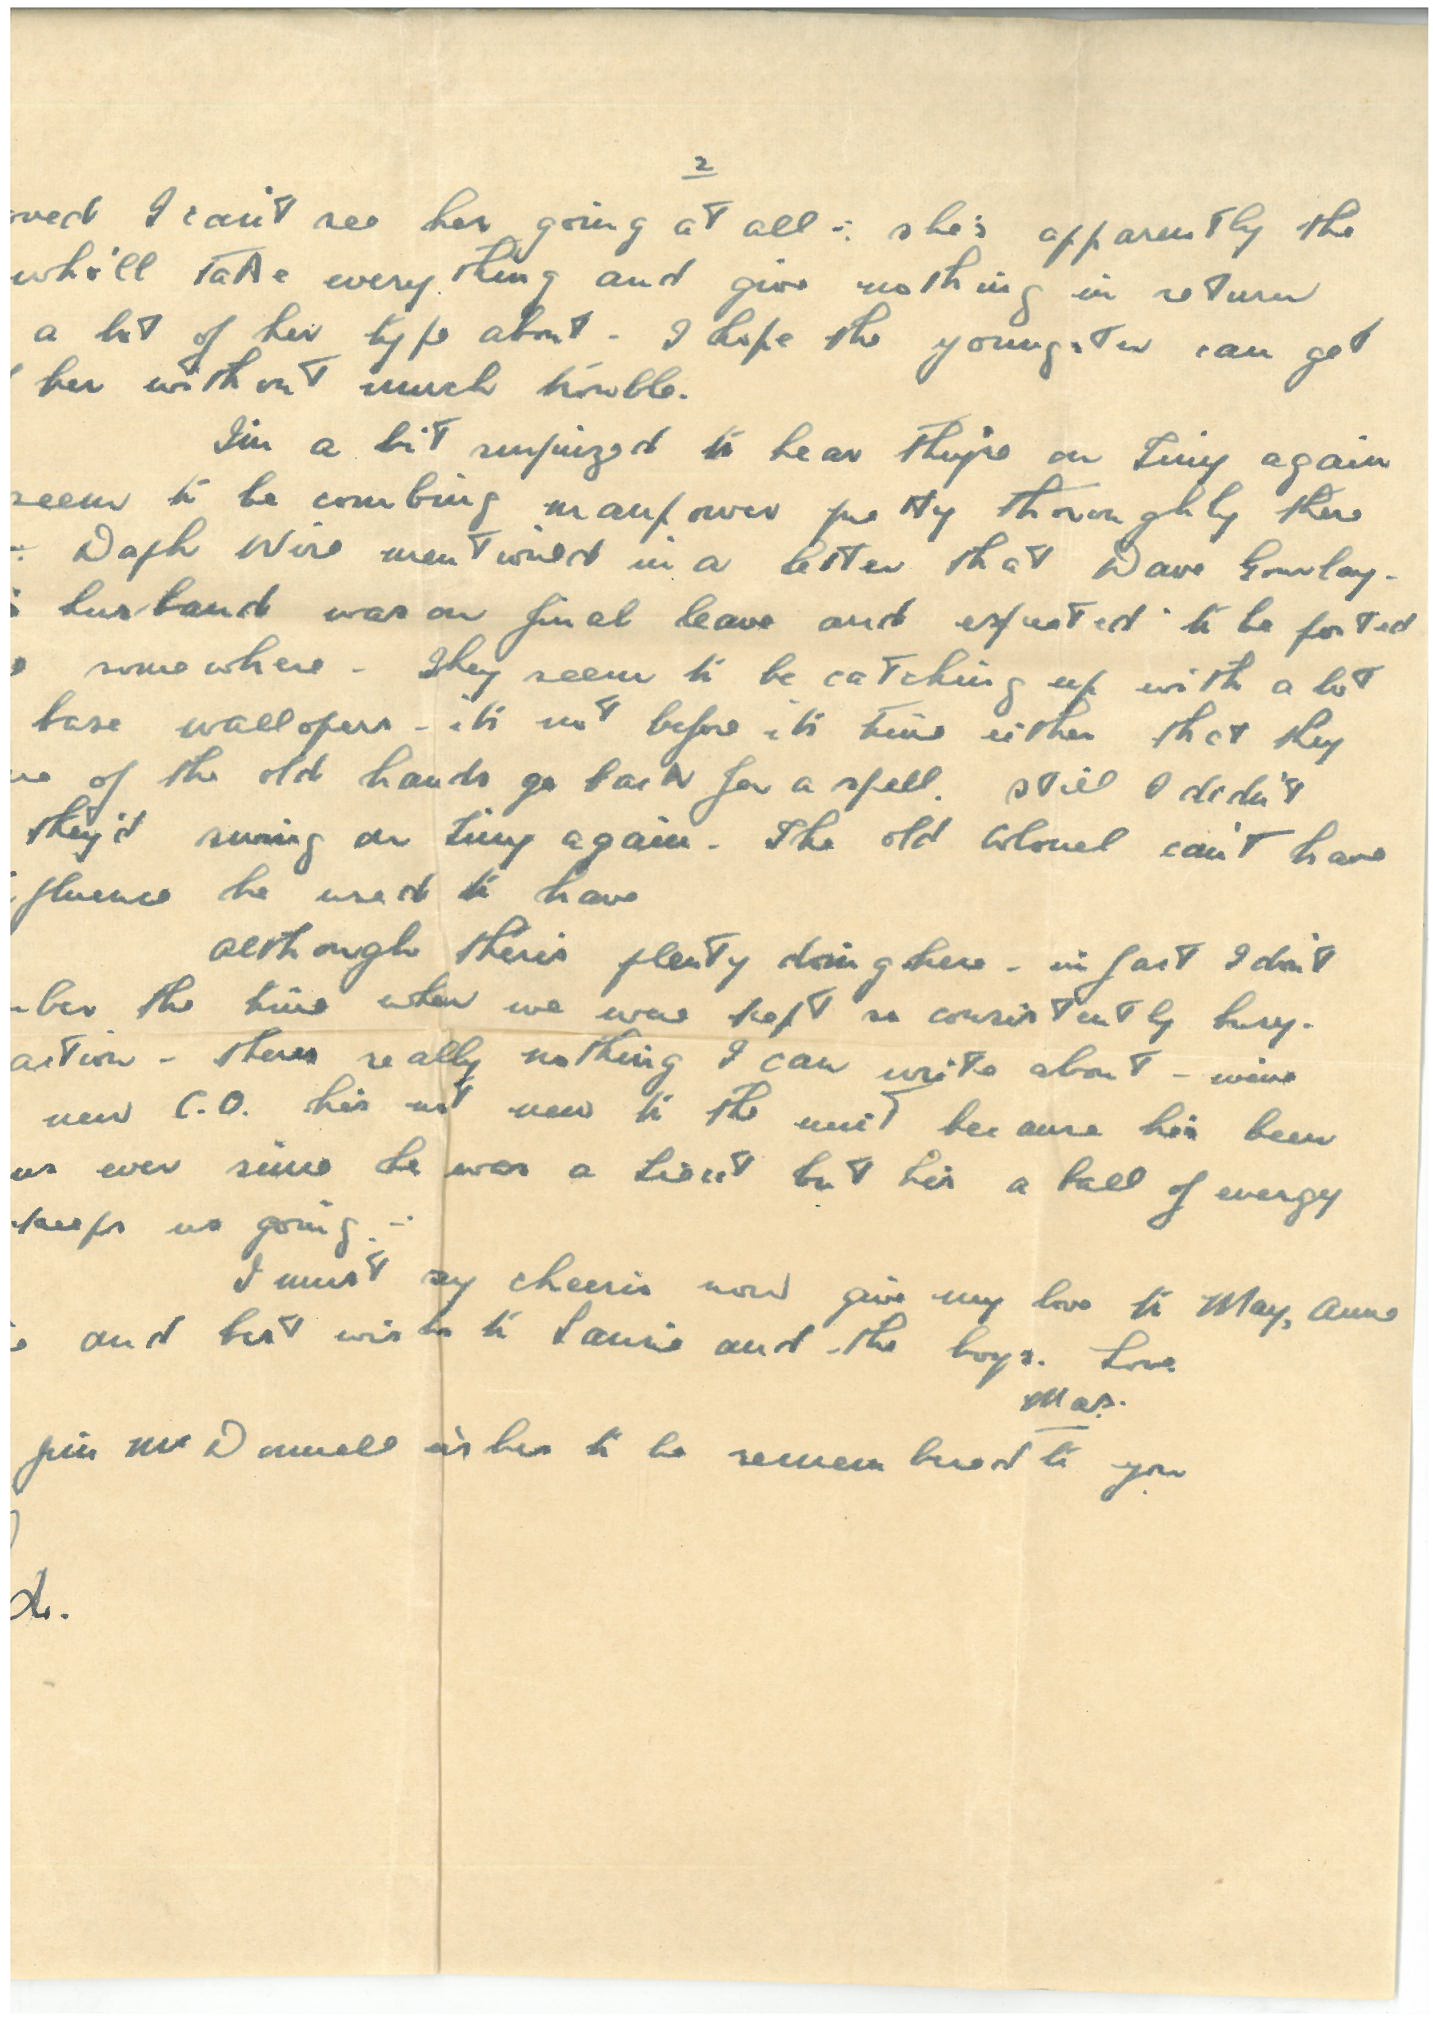 2
oved I can't see her going at all - she's apparently the
who'll take everything and give nothing in return
a lot of her type about - I hope the youngster can get
her without much trouble.
I'm a bit surprized to hear they're on Tiny again
seem to be combing manpower pretty thoroughly there
Daph Wire mentioned in a letter that Dave Gourlay -
husband was on final leave and expected to be posted
somewhere - They seem to be catching up with a lot
base wallopers - it's not before it's time either that they
of the old hands go back for a spell. Still I didn't
they'd swing on Tiny again - The old Colonel can't have
fluence he used to have
Although there's plenty doing here - in fact I don't
ber the time when we were kept so consistently busy -
action - there's really nothing I can write about - we've
new C.O. he's not new to the unit because he's been
us ever since he was a Lieut but he's a ball of energy
keeps us going -
I must say cheerio now give my love to May, Anne
and best wishes to Laurie and the boys. Love
Mas.
Jim McDonnell wishes to be remembered to you